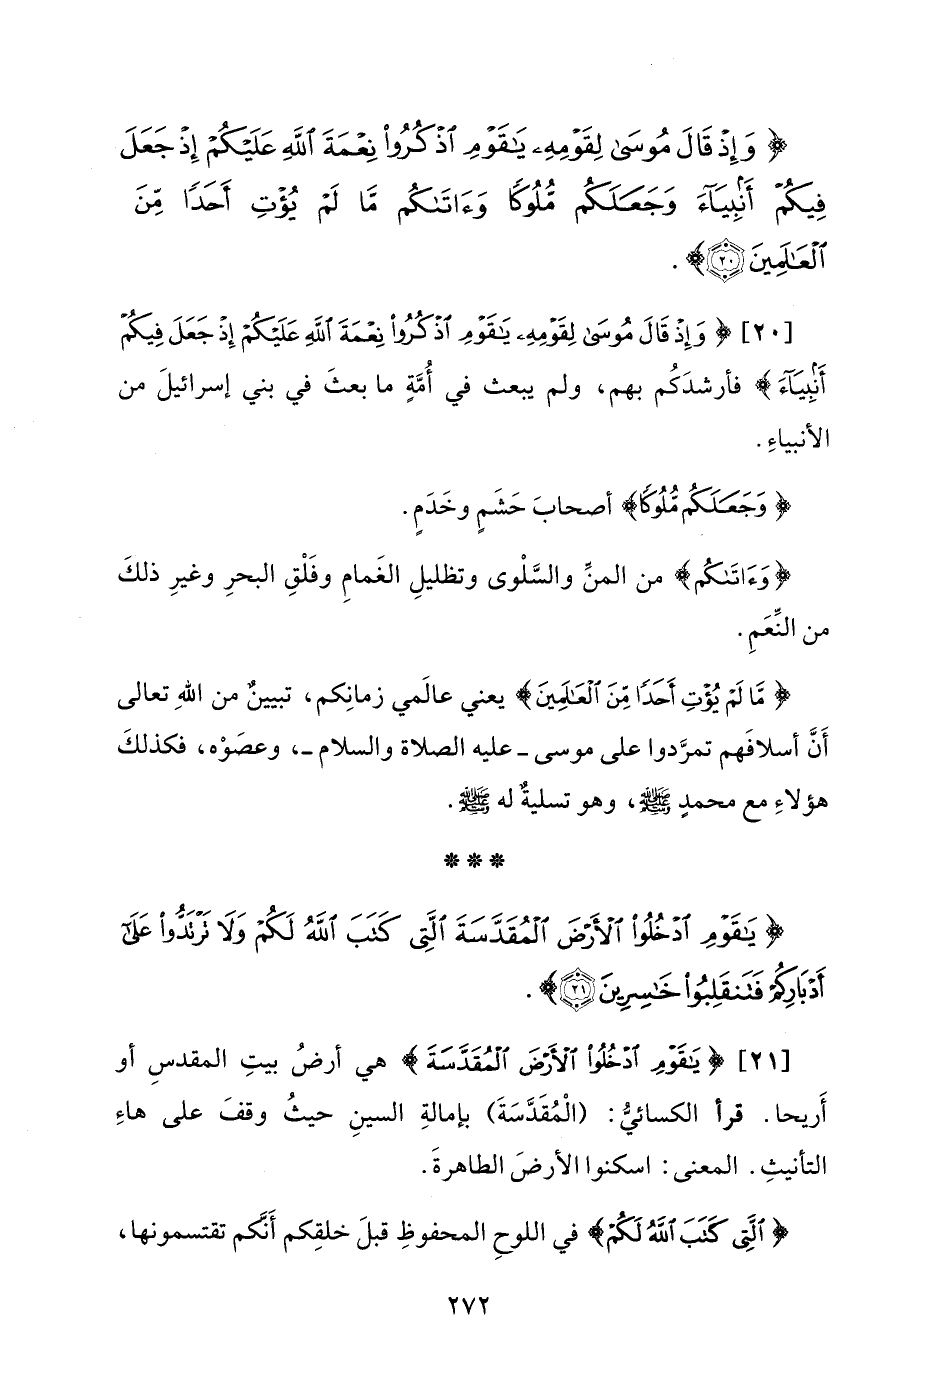 ﴿ وَإِذْ قَالَ مُوسَىٰ لِقَوْمِهِۦ يَٰقَوْمِ ٱذْكُرُوا۟ نِعْمَةَ ٱللَّهِ عَلَيْكُمْ إِذْ جَعَلَ
فِيكُمْ أَنۢبِيَآءَ وَجَعَلَكُم مُّلُوكًا وَءَاتَىٰكُم مَّا لَمْ يُؤْتِ أَحَدًا مِّنَ
ٱلْعَٰلَمِينَ ٢٠ ﴾ .
[٢٠] ﴿ وَإِذْ قَالَ مُوسَىٰ لِقَوْمِهِۦ يَٰقَوْمِ ٱذْكُرُوا۟ نِعْمَةَ ٱللَّهِ عَلَيْكُمْ إِذْ جَعَلَ فِيكُمْ
أَنۢبِيَآءَ ﴾ فأرشدَكُم بهم، ولم يبعث في أُمَّةٍ ما بعثَ في بني إسرائيلَ من
الأنبياءِ.
﴿ وَجَعَلَكُم مُّلُوكًا﴾ أصحابَ حَشَمٍ وخَدَمٍ.
﴿وَءَاتَىٰكُم﴾ من المنِّ والسَّلْوى وتظليلِ الغَمامِ وفَلْقِ البحرِ وغيرِ ذلكَ
من النِّعَمِ.
﴿ مَّا لَمْ يُؤْتِ أَحَدًا مِّنَ ٱلْعَٰلَمِينَ﴾ يعني عالَمي زمانِكم، تبيينٌ من اللهِ تعالى
أنَّ أسلافَهم تمرَّدوا على موسى ـ عليه الصلاة والسلام ـ، وعصَوْه، فكذلكَ
هؤلاءِ مع محمدٍ ﷺ، وهو تسليةٌ له ﷺ.
***
﴿ يَٰقَوْمِ ٱدْخُلُوا۟ ٱلْأَرْضَ ٱلْمُقَدَّسَةَ ٱلَّتِى كَتَبَ ٱللَّهُ لَكُمْ وَلَا تَرْتَدُّوا۟ عَلَىٰٓ
أَدْبَارِكُمْ فَتَنقَلِبُوا۟ خَٰسِرِينَ ٢١ ﴾ .
[٢١] ﴿ يَٰقَوْمِ ٱدْخُلُوا۟ ٱلْأَرْضَ ٱلْمُقَدَّسَةَ ﴾ هي أرضُ بيتِ المقدسِ أو
أَريحا. قرأ الكسائيُّ: (الْمُقَدَّسَةَ) بإمالةِ السينِ حيثُ وقفَ على هاءِ
التأنيثِ. المعنى: اسكنوا الأرضَ الطاهرةَ.
﴿ ٱلَّتِى كَتَبَ ٱللَّهُ لَكُمْ﴾ في اللوحِ المحفوظِ قبلَ خلقِكم أَنَّكم تقتسمونها،
٢٧٢